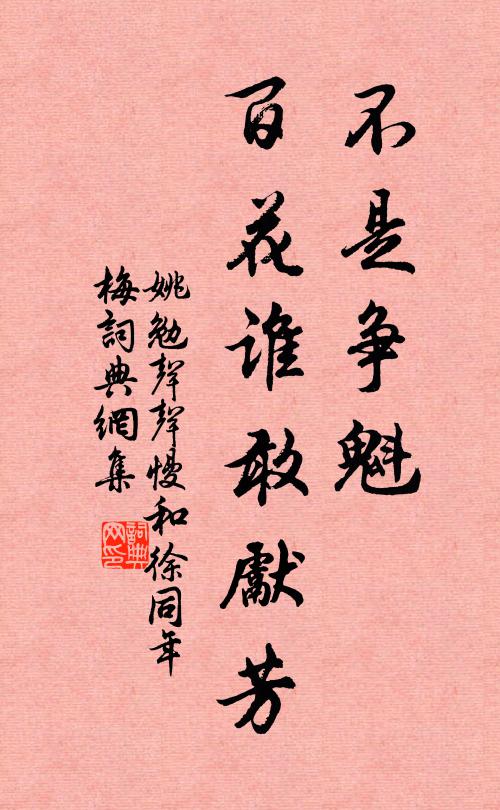 不是争魁
百花谁敢獻芳
姚勉聲聲慢和徐同年
梅詞典網集
詞典
网印